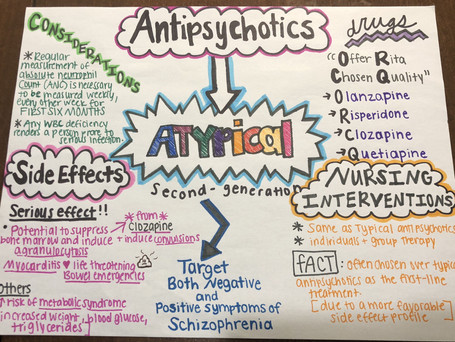 Antipsychotics
CONSIDERATIONS
* Regular
measurement of
absolute neutrophil
Count (ANC) is necessary
to be measured weekly,
every other week for
FIRST SIX MONTHS
* Any WBC deficiency
renders a person prone to
serious infection.
drugs
"Offer Rita
Chosen Quality"
→ Olanzapine
→ Risperidone
→ Clozapine
→ Quetiapine
ATypical
Second-generation
Side Effects
Serious effect!!
• Potential to suppress
bone marrow and induce
agranulocytosis
* from
clozapine
+ induce convulsions
Myocarditis ♥ life threatening
bowel emergencies
Others
↑ risk of metabolic syndrome
increased weight, blood gluc­ose,
triglycerides
Target
Both Negative
and
Positive symptoms of
Schizophrenia
NURSING
INTERVENTIONS
* Same as Typical antipsychotics
* individuals + group therapy
FACT: often chosen over typical
antipsychotics as the first-line
treatment.
[due to a more favorable
side effect profile]